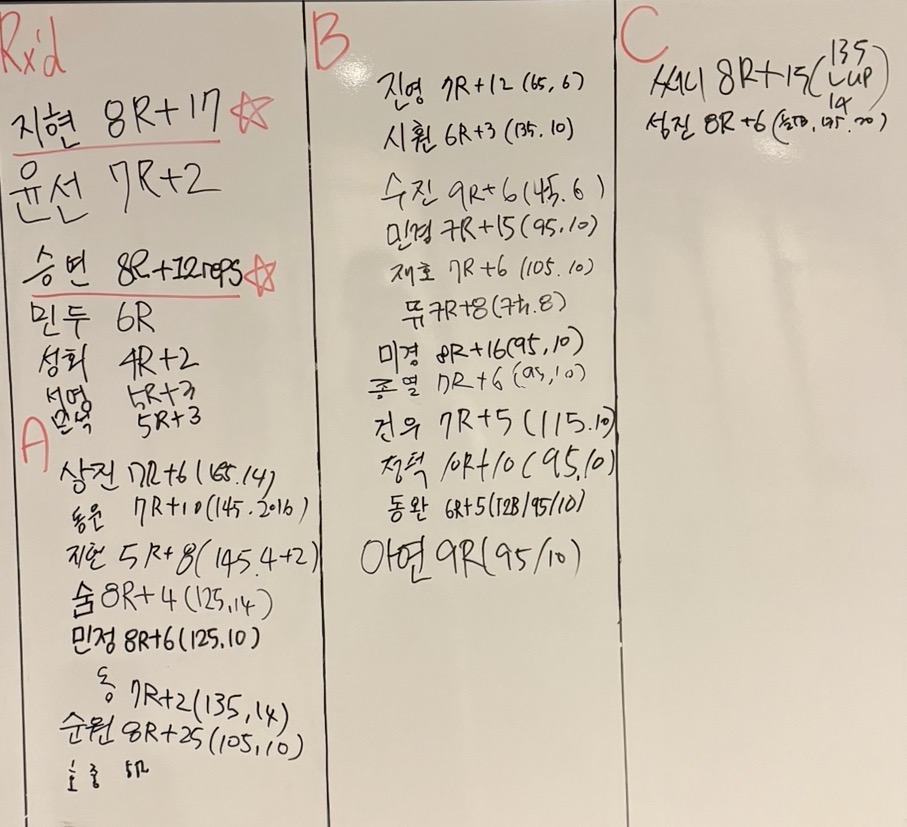 Rx'd
지현 8R+17
윤선 7R+2
승연 8R+12reps
민두 6R
성희 4R+2
서영 5R+3
민석 5R+3
A
상진 7R+6(165.14)
동운 7R+10(145.20lb)
지헌 5R+8(145.4+2)
숨 8R+4(125,14)
민정 8R+6(125.10)
동 7R+2(135,14)
순원 8R+25(105,10)
호중 5R
B
진영 7R+12(65,6)
시환 6R+3(135.10)
수진 9R+6(45.6)
민경 7R+15(95,10)
재호 7R+6(105.10)
뜌 7R+8(75.8)
미경 8R+16(95,10)
종열 7R+6(95,10)
건우 7R+5(115.10)
정덕 10R+10(95,10)
동완 6R+5(T2B/95/10)
아연 9R(95/10)
C
써니 8R+15(135
LUP
14)
성진 8R+6(